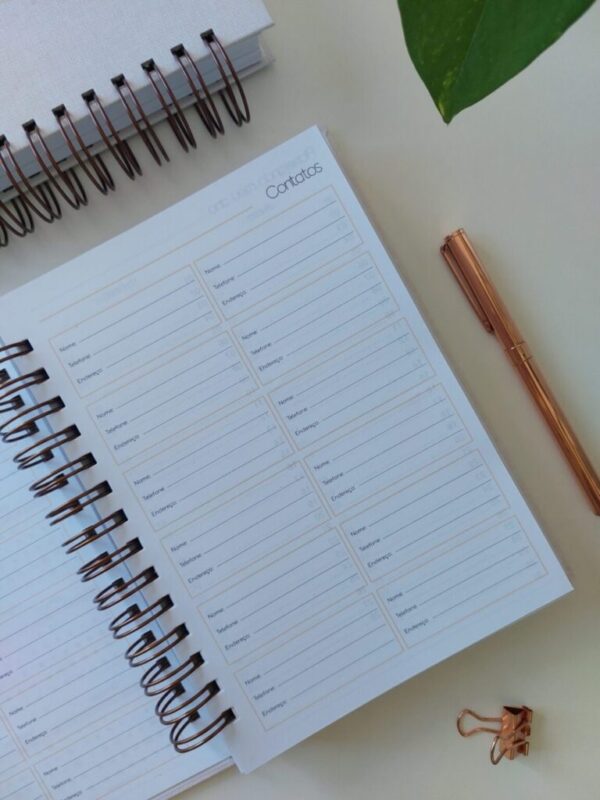 Contatos
Nome:
Telefone:
Endereço:
Nome:
Telefone:
Endereço:
Nome:
Telefone:
Endereço:
Nome:
Telefone:
Endereço:
Nome:
Telefone:
Endereço:
Nome:
Telefone:
Endereço:
Nome:
Telefone:
Endereço:
Nome:
Telefone:
Endereço:
Nome:
Telefone:
Endereço:
Nome:
Telefone:
Endereço:
Nome:
Telefone:
Endereço:
Nome:
Telefone:
Endereço:
Nome:
Telefone:
Endereço:
Nome:
Telefone: